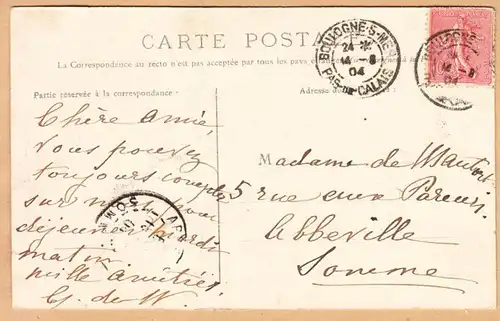 CARTE POSTALE
La Correspondance au recto n'est pas acceptée par tous les pays
Partie réservée à la correspondance:
Adresse
BOULOGNE-S-MER
24
14-8
04
PAS-DE-CALAIS
14-8
04
Chère amie,
vous pouvez
toujours compter
sur moi pour
déjeuner mardi
matin
mille amitiés
Madame de
5 rue aux Pareurs
Abbeville
Somme